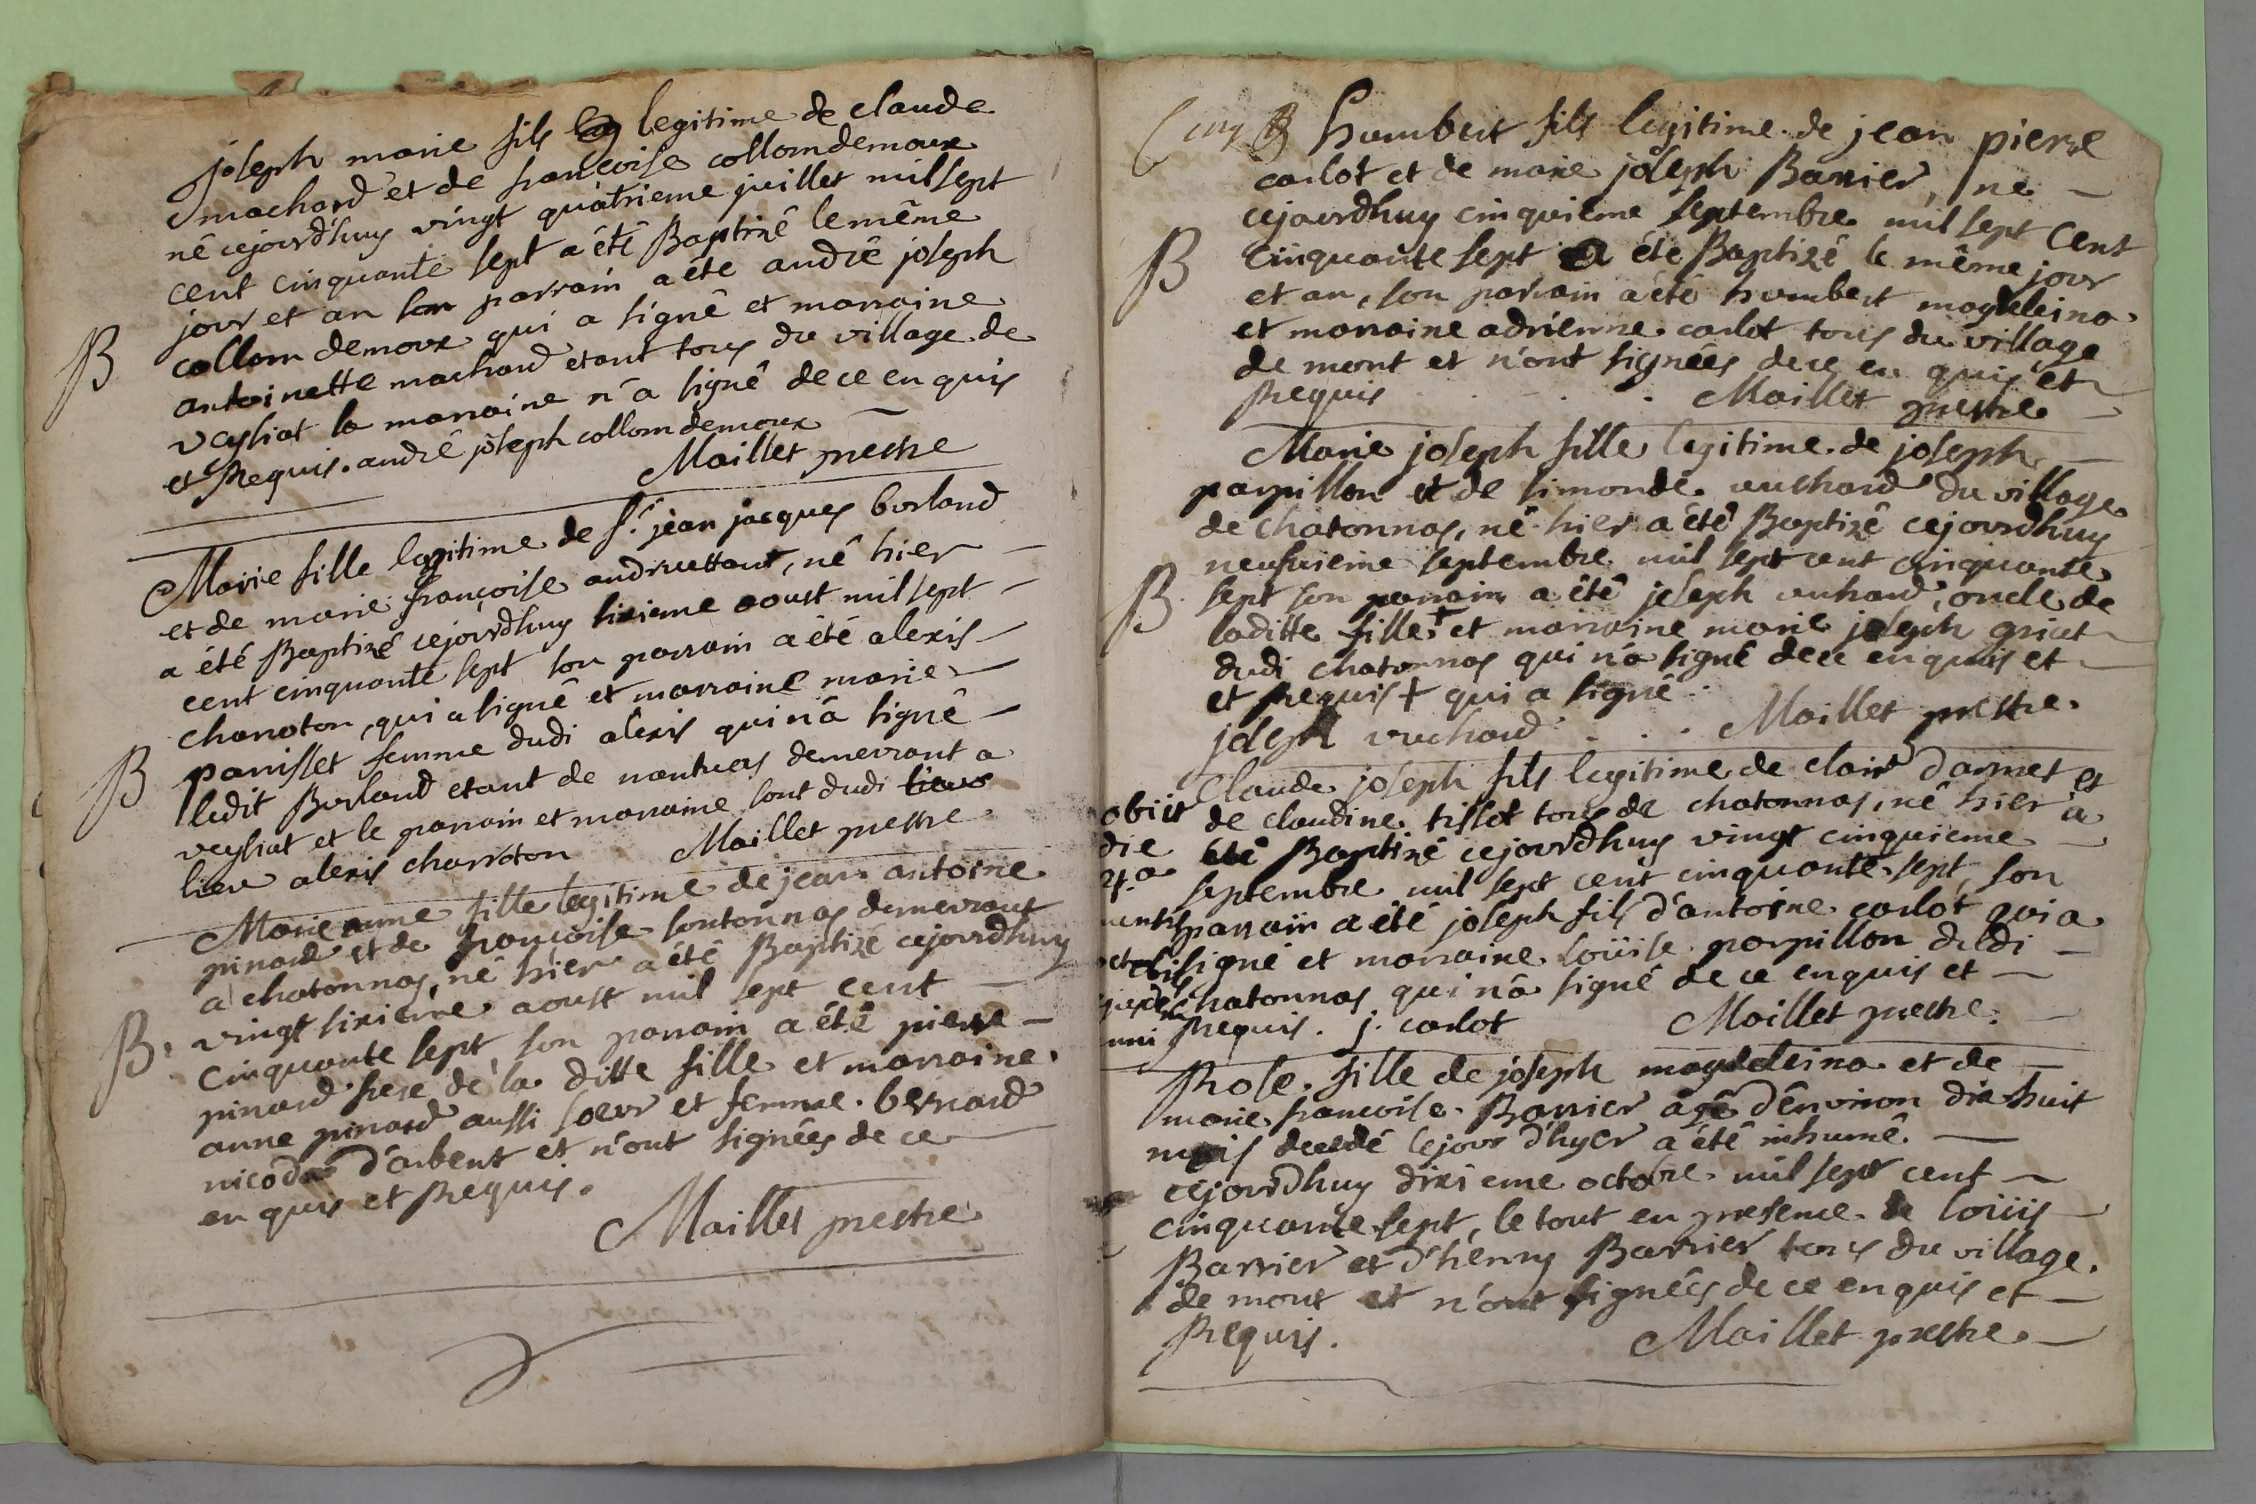 joseph marie fils legitime de claude
machard et de francoise collomdemoux
né cejourdhuy vingt quatrieme juillet mil sept
cent cinquante sept a été Baptizé le même
jour et an son parrain a été andré joseph
B
collom demoux qui a signé et marraine
antoinette machard etant tous du village de
veysiat la marraine n'a signé de ce en quis
et Requis. andré joseph collom demoux
Maillet prestre
Marie fille legitime de Sr. jean jacques borland
et de marie françoise andruettant, né hier
a été Baptizé cejourdhuy sixieme aoust mil sept
cent cinquante sept son parrain a été alexis
chanoton, qui a signé et marraine marie
B
panisset femme dudi alexis qui n'a signé
ledit Borland etant de nantuas demeurant a
veysiat et le parrain et marraine sont dudi lieux
lieu alexis charroton Maillet prestre
Marie anne fille legitime de jean antoine
pinard et de françoise sontonnas demeurant
a chatonnas, né hier a été Baptizé cejourdhuy
B.
vingt sixieme aoust mil sept cent
cinquante sept, son parrain a été pierre
pinard frere de la ditte fille et marraine
anne pinard aussi soeur et femme bernard
nicod d'arbent et n'ont signées de ce
en quis et Requis.
Maillet prestre
B humbert fils legitime de jean pierre
carlot et de marie joseph Barrier, ne
cejourdhuy cinquieme septembre mil sept cent
B
cinquante sept a été Baptizé le même jour
et an, son parrain a été humbert magdeleina
et marraine adrienne carlot tous du village
de mont et n'ont signées de ce en quis et
Requis . . . . Maillet prestre
Marie joseph fille legitime de joseph
parpillon et de simonde vuchard du village
de chatonnas, né hier a été Baptizé cejourdhuy
neufvieme septembre mil sept cent cinquante
B.
sept son parrain a été joseph vuchard, oncle de
laditte fille + et marraine marie joseph griat
dudi chatonnas qui n'a signé de ce en quis et
et Requis + qui a signé
joseph vuchard . . . Maillet prestre.
Claude joseph fils legitime de clair darmet et
obiit
de claudine tissot tous de chatonnas, né hier a
die
été Baptizé cejourdhuy vingt cinquieme
septembre mil sept cent cinquante sept, son
parrain a été joseph fils d'antoine carlot qui a
signé et marraine loüise parpillon dudi
chatonnas qui n'a signé de ce en quis et
Requis. j. carlot Maillet prestre.
Rose fille de joseph magdeleina et de
marie francoise Barrier agé d'environ dix huit
mois decedé lejour d'hyer a été inhumé
cejourdhuy dixieme octobre mil sept cent
cinquante sept, le tout en presence de loüis
Barrier et d'henry Barrier tous du village
de mont et n'ont signées de ce en quis et
Requis. Maillet prestre